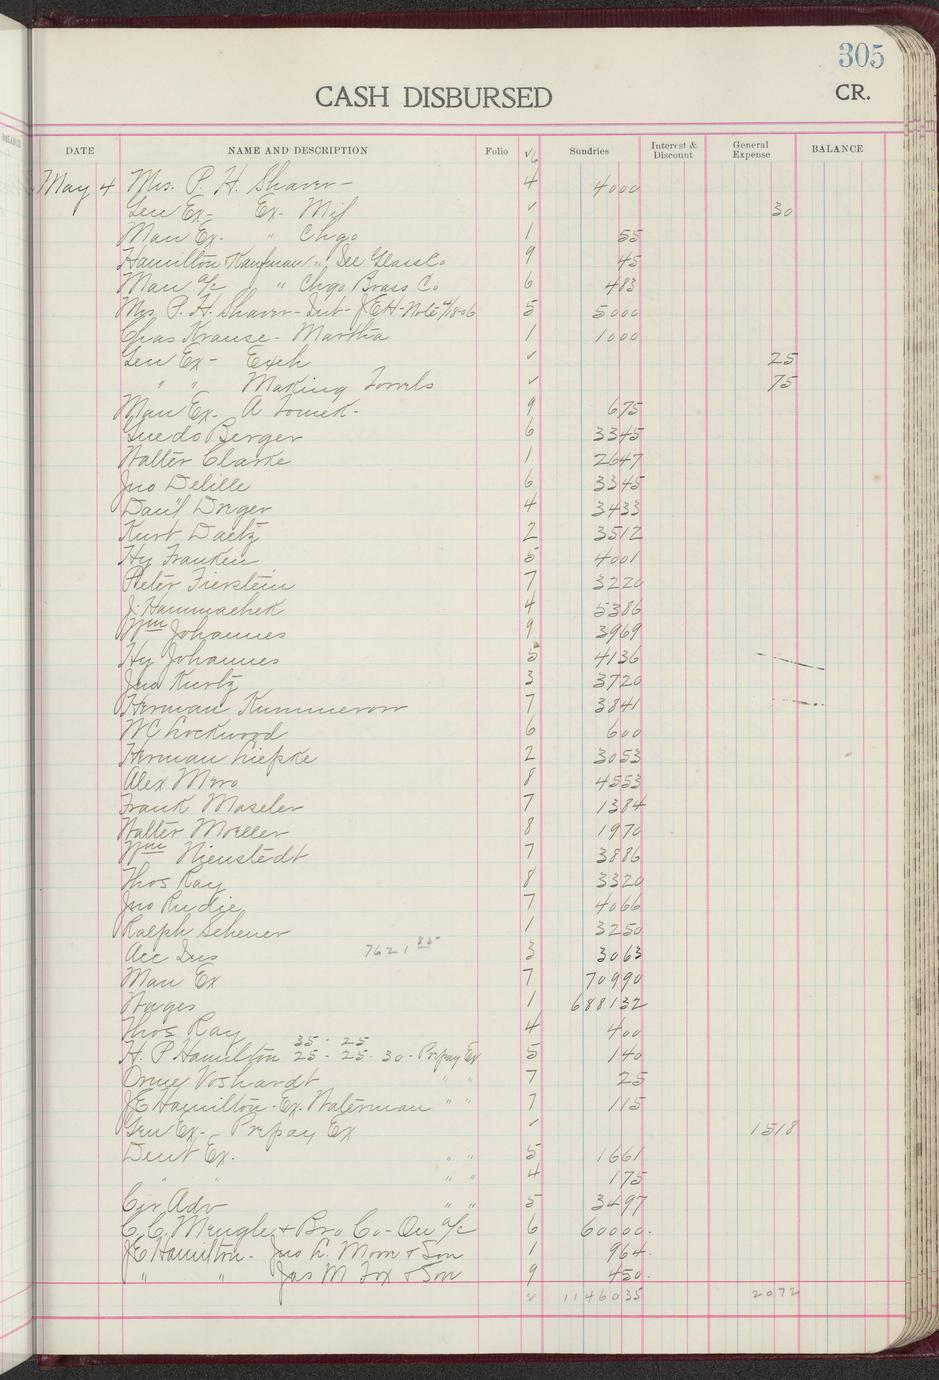 305
CASH DISBURSED
CR.
BALANCE
DATE NAME AND DESCRIPTION Folio √6 Sundries Interest & Discount General Expense BALANCE
May 4 Mrs. P. H. Shaver - 4 4000
Gen Ex - Ex - Mil ✓ 30
Man Ex. " Chgo 1 55
Hamilton Kaufman " Dee Glass Co 9 45
Man a/c " Chgo Brass Co 6 483
Mrs. P. H. Shaver - Int - JEH - Note 4/18-06 5 5000
Chas Krause - Martha 1 1000
Gen Ex - Exch ✓ 25
" " Making Towels ✓ 75
Man Ex. A Tomek - 9 675
Guedo Berger 6 3345
Walter Clarke 1 2647
Jno Delille 6 3345
Danl Dreger 4 3433
Kurt Daetz 2 3512
Hy Franken 5 4001
Peter Fierstein 7 3220
J. Hammachek 4 5386
Wm Johannes 9 3969
Hy Johannes 5 4136
Jno Kurtz 3 3720
Herman Kummerow 7 3841
WC Lockwood 6 600
Herman Liepke 2 3053
Alex Mero 8 4553
Frank Maseler 7 1384
Walter Moeller 8 1970
Wm Nienstedt 7 3886
Thos Ray 8 3320
Jno Rudie 7 4066
Ralph Scheuer 1 3250
Acc Ins 7621 85 3 3063
Man Ex 7 70990
Wages 1 688132
Thos Ray 4 400
35 - 25
H. P. Hamilton 25 - 25 - 30 - Prepay Ex 5 140
Orme Voshardt " " 7 25
JE Hamilton - Ex. Waterman " " 7 115
Gen Ex - Prepay Ex ✓ 1518
Dent Ex. " " 5 1661
" " " " 4 175
Cir Adv " " 5 3497
C. C. Mengle & Bro Co - On a/c 6 60000.
JE Hamilton - Jno L. Moon & Son 1 964.
" " Jas M Fox & Son 9 450.
✓ 1146035 2072